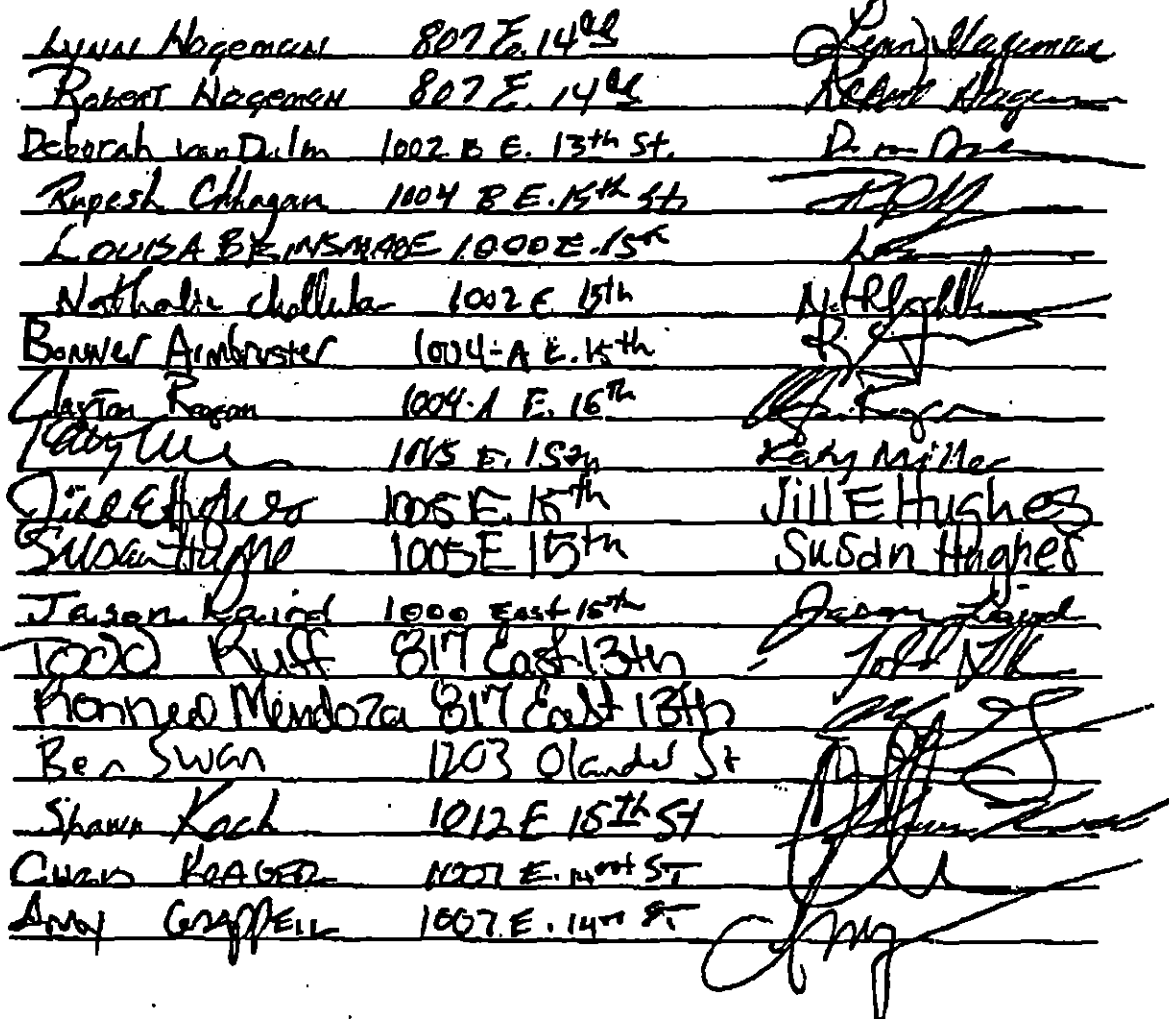 Lynn Hageman 807 E. 14th Lynn Hageman
Robert Hageman 807 E. 14th Robert Hageman
Deborah van Dulm 1002 B E. 13th St.
Rupesh Chhagan 1004 B E. 15th St.
LOUISA BRINSMADE 1000 E. 15th
Nathalie 1002 E 15th
Bonner Armbruster 1004-A E. 15th
Clayton Reagan 1004-A E. 15th
E. 15th Katy Miller
Jill E Hughes 1005 E. 15th Jill E Hughes
Susan Hughes 1005 E 15th Susan Hughes
Jason Laird 1000 East 15th Jason Laird
TODD Ruff 817 East 13th
Mendoza 817 East 13th
Ben Swan 1203 Olander St
Shawn Koch 1012 E 15th St
1007 E. 14th ST
1007 E. 14th ST Amy